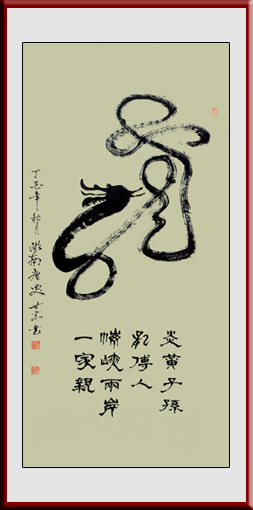 龍
炎黃子孫
龍傳人
海峽兩岸
一家親
丁亥年秋月